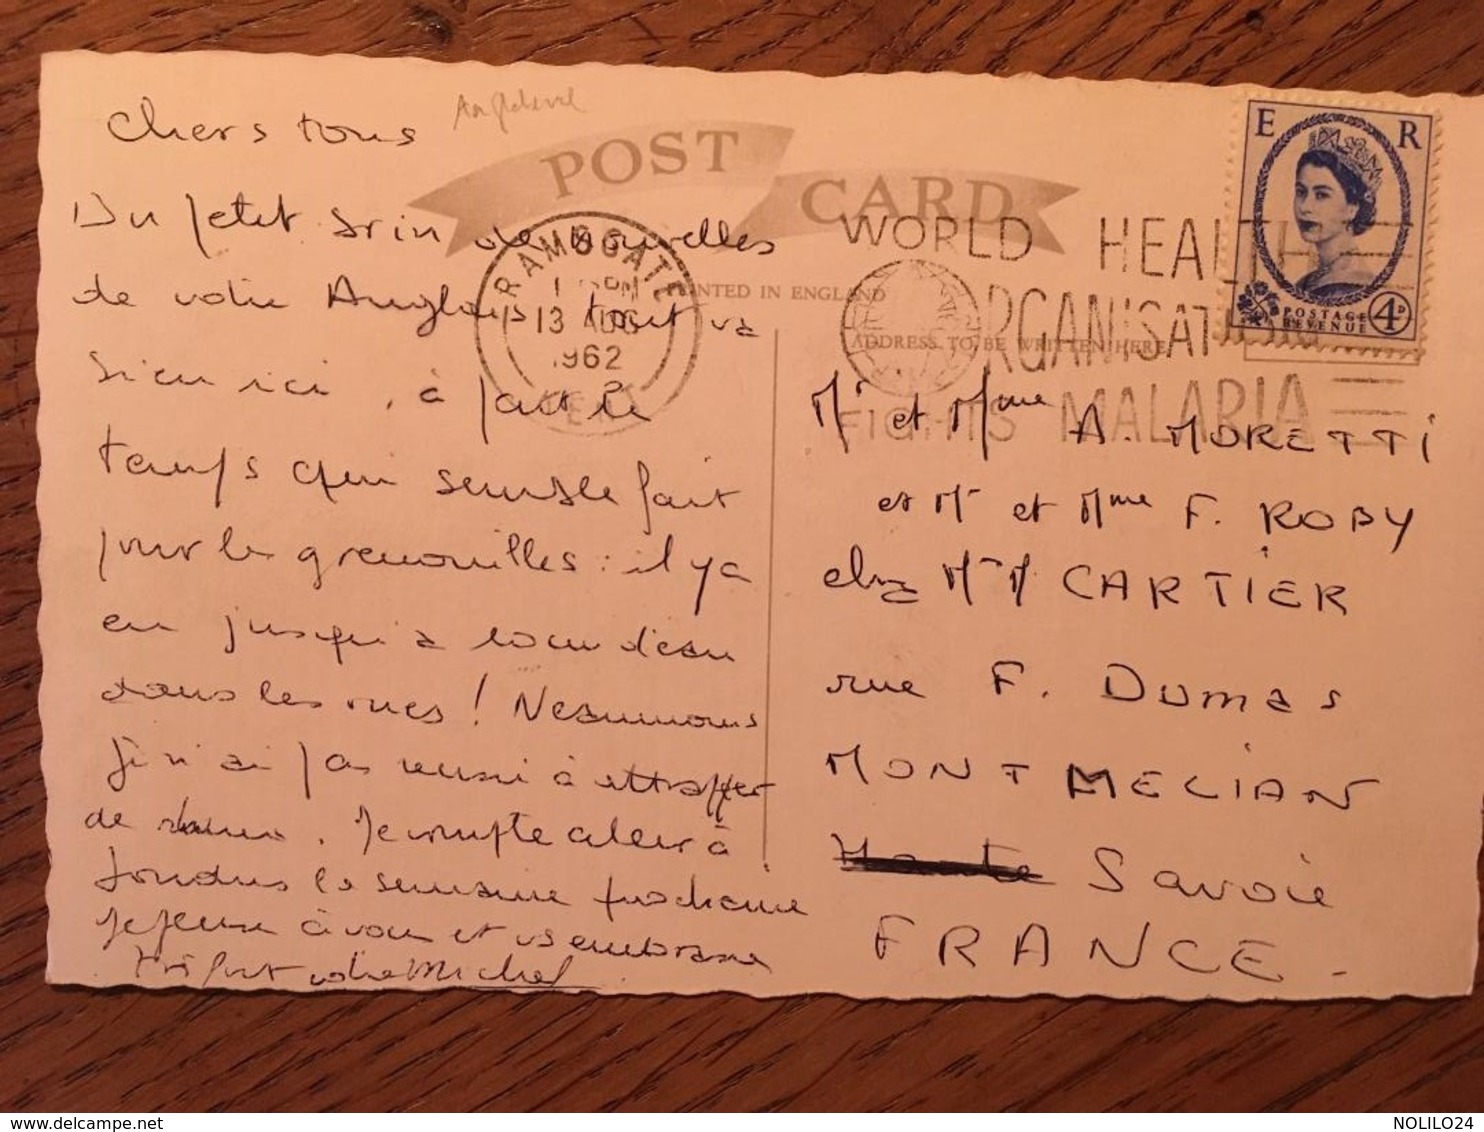 Chers tous
Angleterre
POST CARD
Un petit brin de nouvelles
de votre Anglais tout va
bien ici, à part le
temps qui semble fait
pour les grenouilles : il y a
en jusqu'à 20 cm d'eau
dans les rues ! Neanmoins
je n'ai pas reussi à attrapper
de rhume. Je compte aller à
Londres la semaine prochaine
Je pense à vous et vs embrasse
très fort votre Michel
RAMSGATE
PM
13 AUG
1962
KENT
PRINTED IN ENGLAND
WORLD HEALTH
ORGANISATION
FIGHTS MALARIA
ADDRESS TO BE WRITTEN HERE
E R
POSTAGE
REVENUE
4D
Mr et Mme A. MORETTI
et Mr et Mme F. ROBY
chez Mr M CARTIER
rue F. DUMAS
MONTMELIAN
Haute Savoie
FRANCE -
NOLILO24